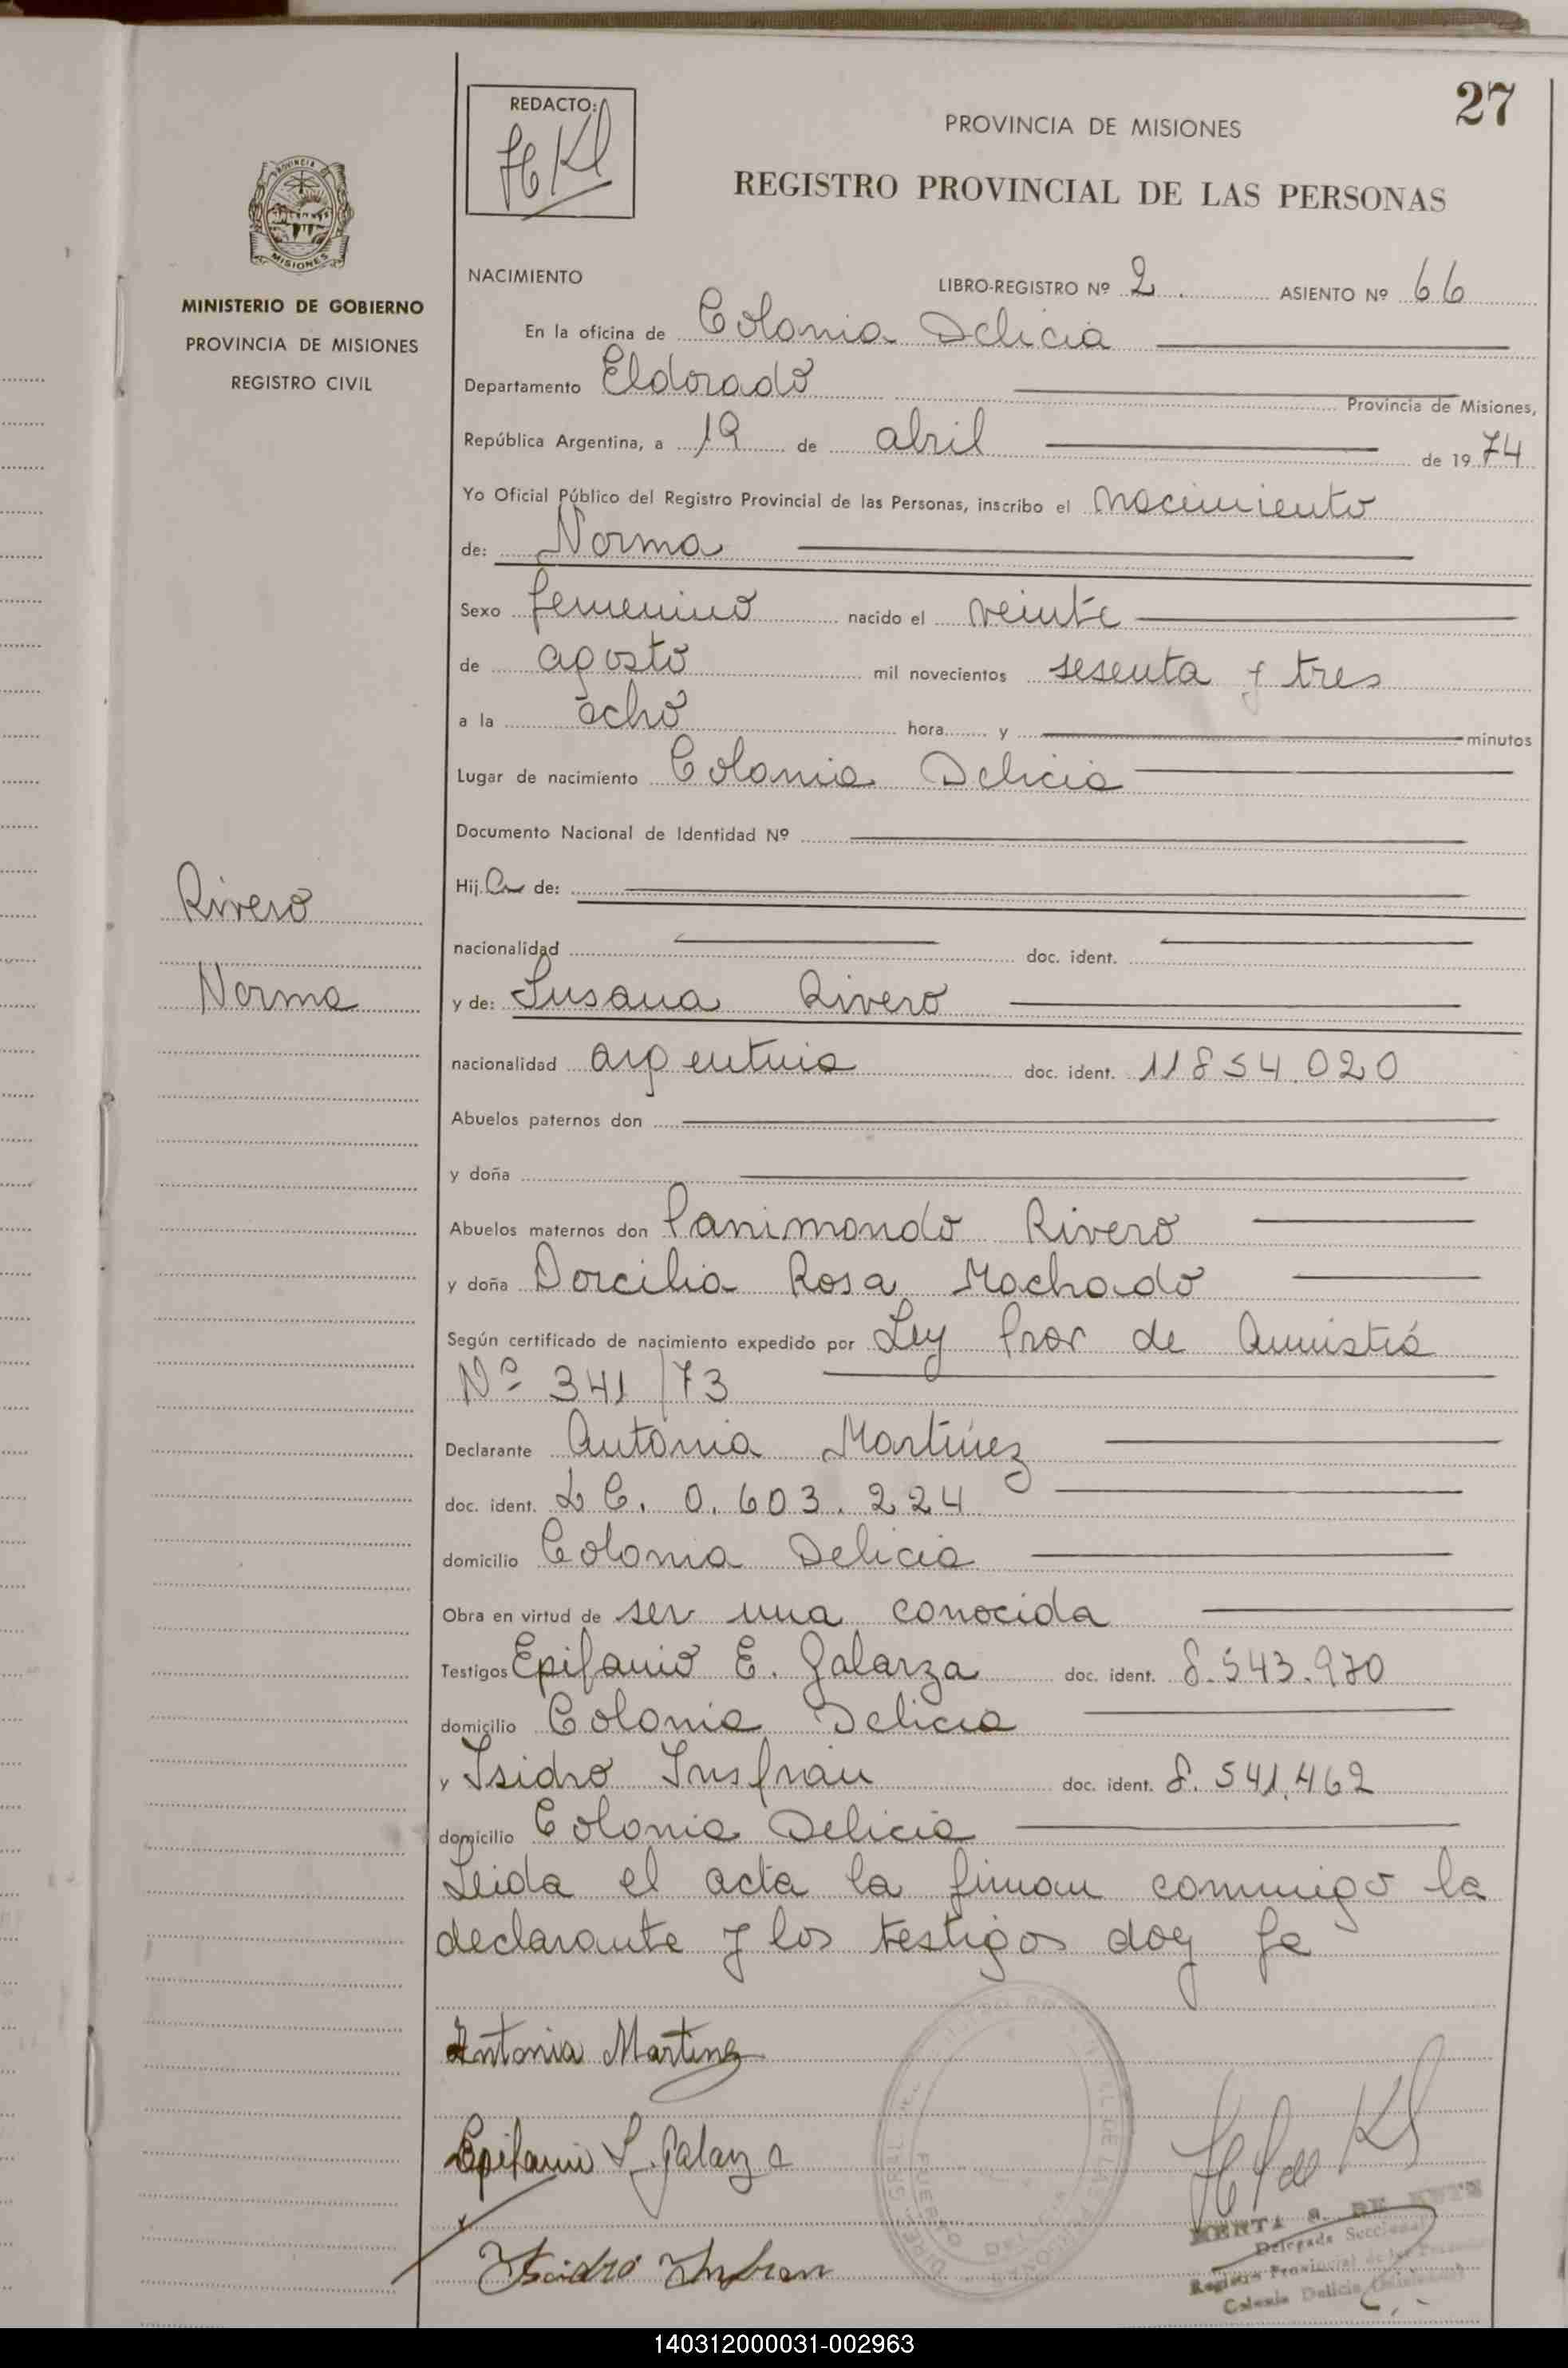 27
REDACTO:
PROVINCIA DE MISIONES
REGISTRO PROVINCIAL DE LAS PERSONAS
PROVINCIA DE
MISIONES
MINISTERIO DE GOBIERNO
PROVINCIA DE MISIONES
REGISTRO CIVIL
NACIMIENTO LIBRO-REGISTRO Nº 2. ASIENTO Nº 66
En la oficina de Colonia Delicia
Departamento Eldorado Provincia de Misiones,
República Argentina, a 19 de abril de 1974
Yo Oficial Público del Registro Provincial de las Personas, inscribo el nacimiento
de: Norma
Sexo femenino nacido el veinte
de agosto mil novecientos sesenta y tres
a la ocho hora y minutos
Lugar de nacimiento Colonia Delicia
Documento Nacional de Identidad Nº
Hija de:
Rivero
nacionalidad doc. ident.
Norma
y de: Susana Rivero
nacionalidad argentina doc. ident. 11854.020
Abuelos paternos don
y doña
Abuelos maternos don Panimondo Rivero
y doña Dorcilia Rosa Machado
Según certificado de nacimiento expedido por Ley Prov de Amnistiá
Nº 341/73
Declarante Antonia Martínez
doc. ident. L C. 0.603.224
domicilio Colonia Delicia
Obra en virtud de ser una conocida
Testigos Epifanio E. Galarza doc. ident. 8.543.970
domicilio Colonia Delicia
y Isidro Insfrán doc. ident. 8.541.462
domicilio Colonia Delicia
Leida el acta la firman conmigo la
declarante y los testigos doy fe
Antonia Martinez
Epifanio Galarza
Isidro Insfran
Delegada Seccional
Registro Provincial de las Personas
Colonia Delicia (Misiones)
140312000031-002963